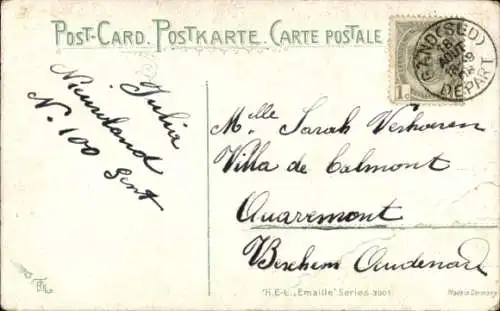 POST-CARD. POSTKARTE. CARTE POSTALE
Julia
Nieuwland
N. 100 Gent
GAND (SUD)
AOUT
DEPART
1c
Melle Sarah Verhoeven
Villa de Calmont
Quaremont
Berchem Audenarde
"R.E.L. „Emaille" Series 3901
Made in Germany